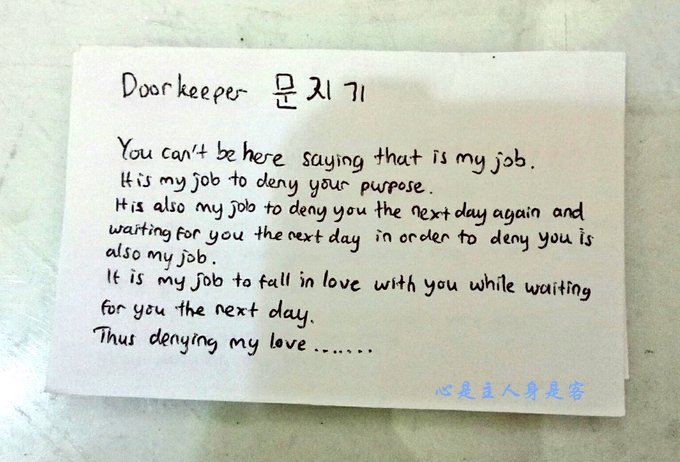 Doorkeeper 문지기
You can't be here saying that is my job.
It is my job to deny your purpose.
It is also my job to deny you the next day again and
waiting for you the next day in order to deny you is
also my job.
It is my job to fall in love with you while waiting
for you the next day.
Thus denying my love.......
心是主人身是客